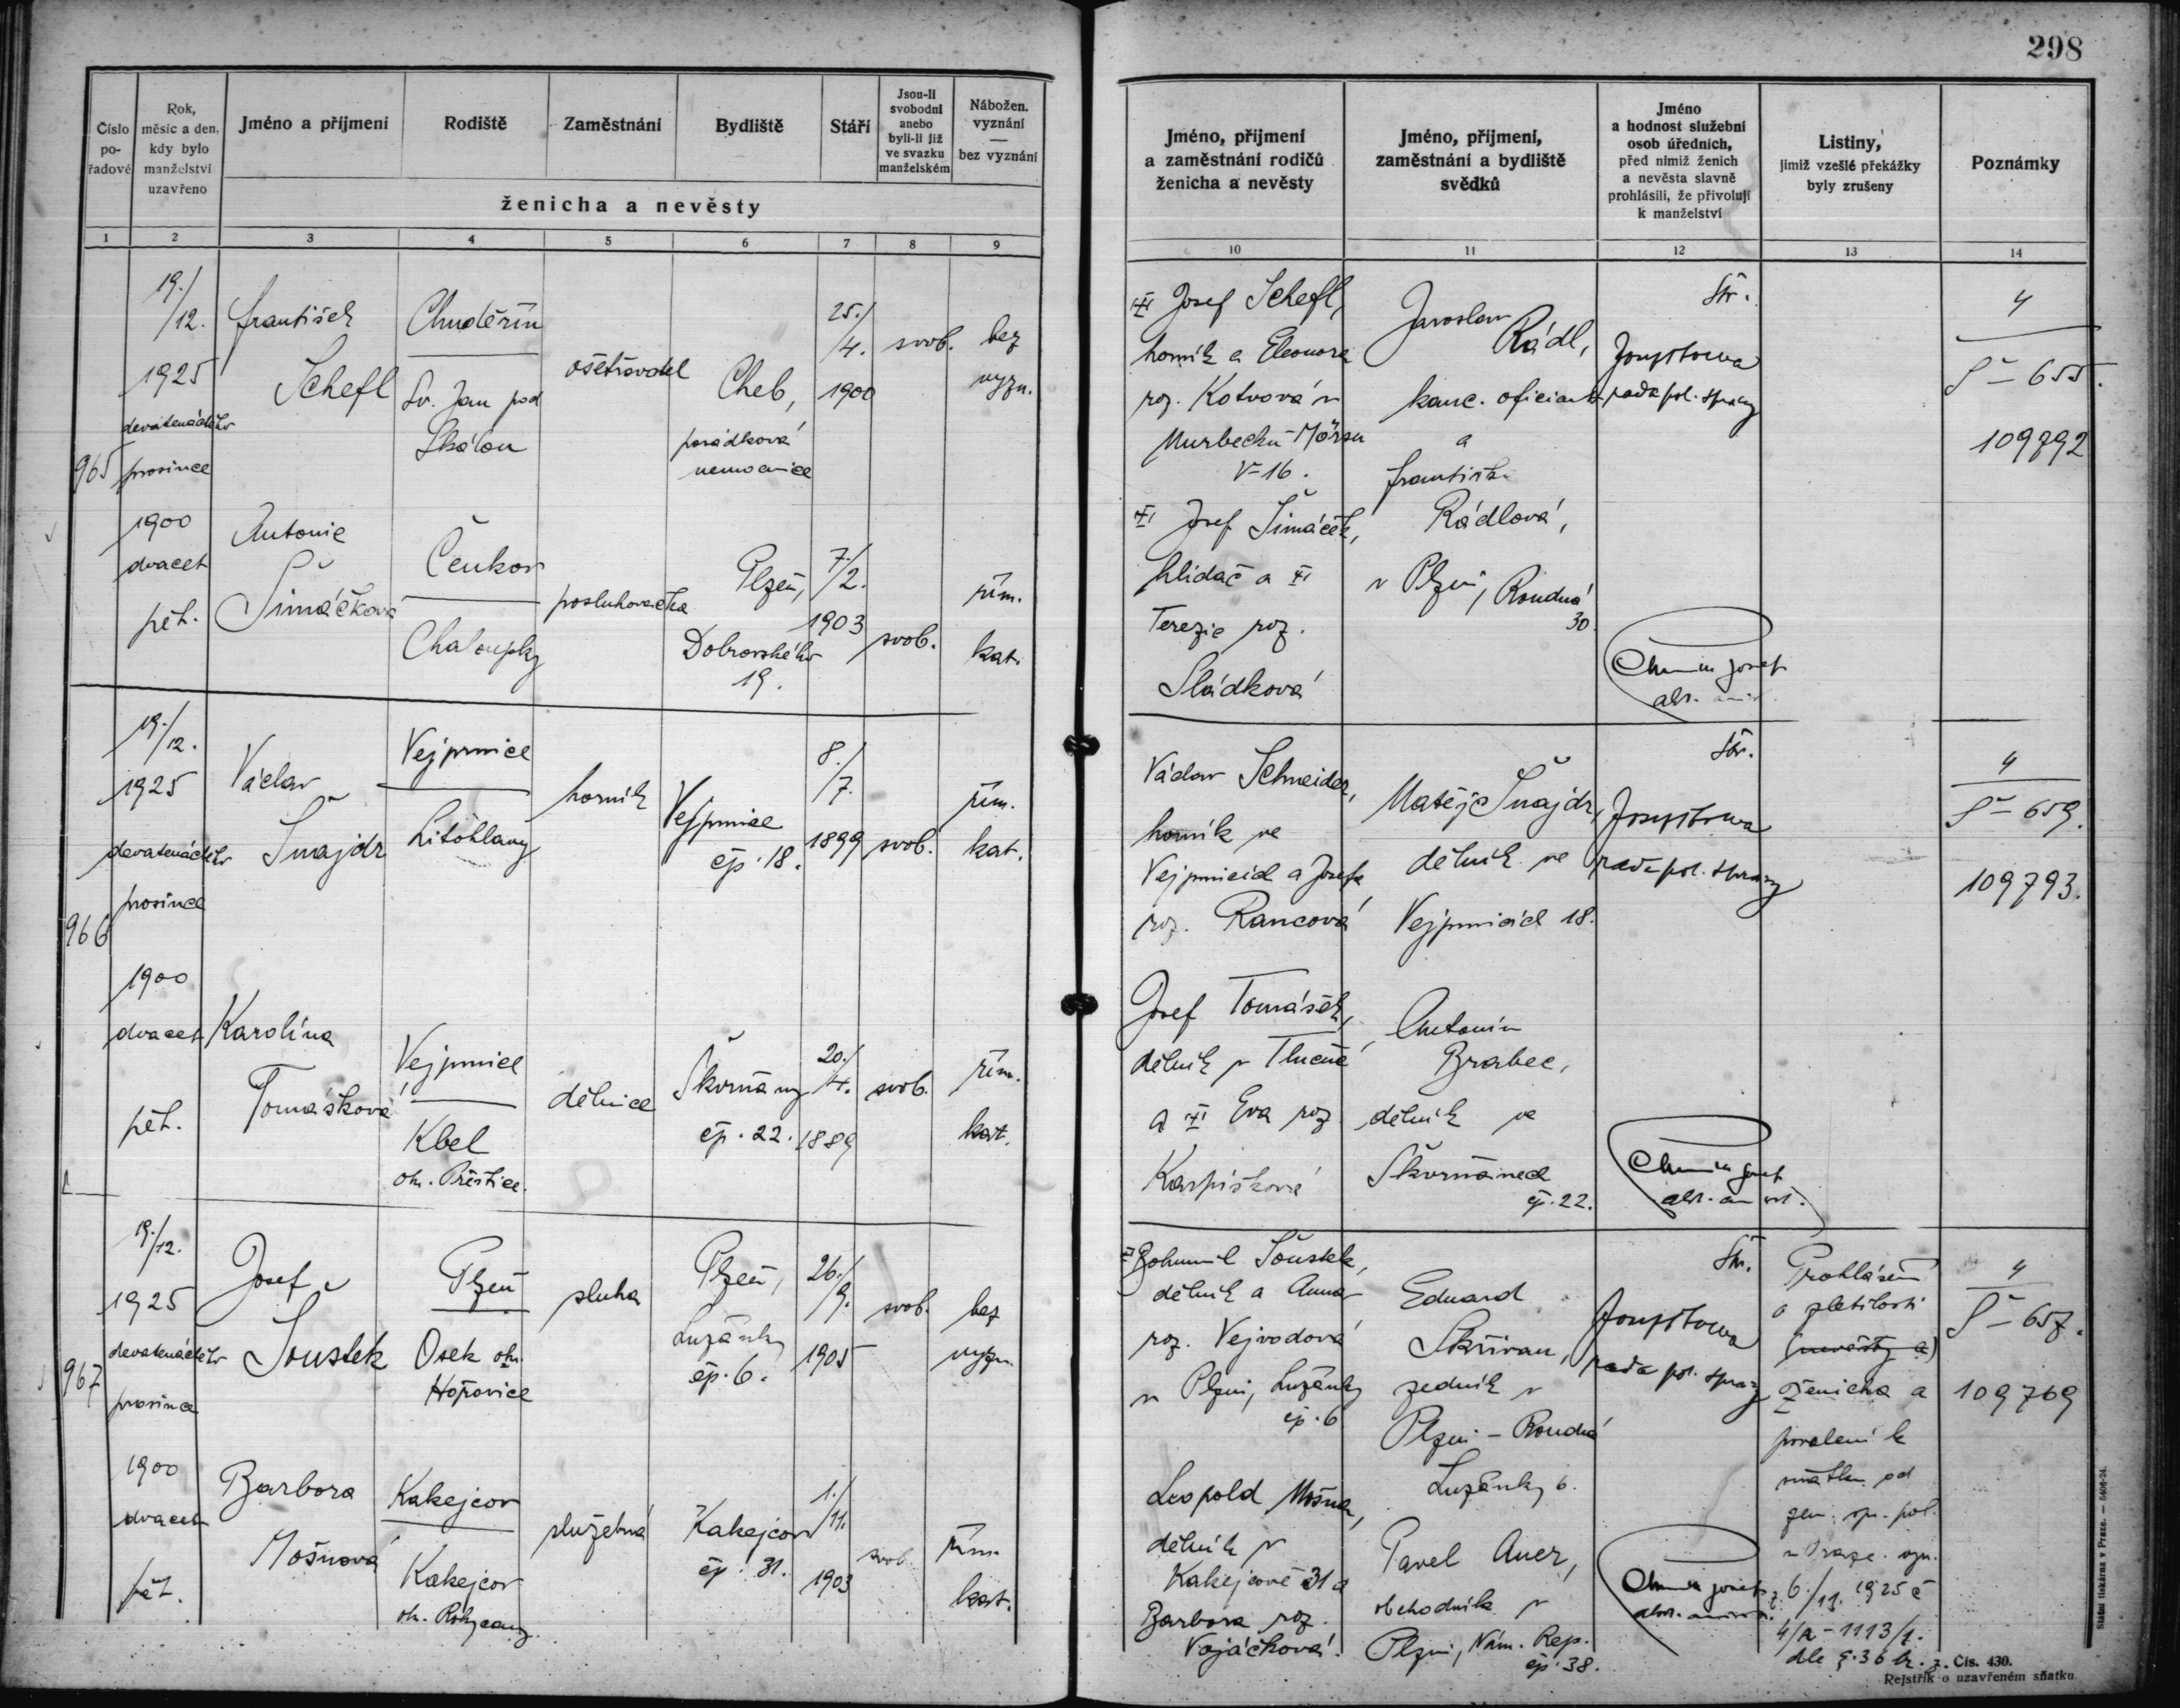 298
Číslo pořadové
Rok, měsíc a den, kdy bylo manželství uzavřeno
Jméno a příjmení
Rodiště
Zaměstnání
Bydliště
Stáří
Jsou-li svobodni anebo byli-li již ve svazku manželském
Nábožen. vyznání — bez vyznání
ženicha a nevěsty
Jméno, příjmení a zaměstnání rodičů ženicha a nevěsty
Jméno, příjmení, zaměstnání a bydliště svědků
Jméno a hodnost služební osob úředních, před nimiž ženich a nevěsta slavně prohlásili, že přivolují k manželství
Listiny, jimiž vzešlé překážky byly zrušeny
Poznámky
1 2 3 4 5 6 7 8 9 10 11 12 13 14
965
19./12.
1925
devatenáctého
prosince
1900
dvacet
pět.
František
Schefl
Chuděřín
Sv. Jan pod
Skálou
ošetřovatel
Cheb,
porádková
nemocnice
25./4.
1900
svob.
bez
vyzn.
Josef Schefl,
horník a Eleonora
roz. Kotvová v
V-16.
Jaroslav
Rádl,
kanc. oficiant
a
Rádlová,
v Plzni, Roudná
30.
rada pol. správy
4
655.
109792
Antonie
Šimáčková
Čenkov
Chaloupky
posluhovačka
Plzeň,
Dobrovského
19.
7./2.
1903
svob.
řím.
kat.
Josef Šimáček,
hlídač a
Terezie roz.
Sládková
966
19./12.
1925
devatenáctého
prosince
1900
dvacet
pět.
Václav
Šnajdr
Vejprnice
Litohlavy
horník
Vejprnice
čp. 18.
8./7.
1899
svob.
řím.
kat.
Václav Schneider,
horník ve
Vejprnicích a Josefa
roz. Rancová
Matěj Šnajdr,
dělník ve
Vejprnicích 18.
rada pol. správy
4
659.
109793.
Karolína
Tomášková
Vejprnice
Kbel
okr. Přeštice.
dělnice
Škvrňany
čp. 22.
20./4.
1889
svob.
řím.
kat.
Josef Tomášek,
dělník v Tlučné
a Eva roz.
Karpíšková
Antonín
Brabec,
dělník ve
Škvrňanech
čp. 22.
967
19./12.
1925
devatenáctého
prosince
1900
dvacet
pět.
Josef
Šoustek
Plzeň
Osek okr.
Hořovice
sluha
Plzeň,
Luzánky
čp. 6.
26./9.
1905
svob.
bez
vyzn.
Bohumil Šoustek,
dělník a Anna
roz. Vejvodová
v Plzni, Luzánky
čp. 6
Eduard
Skřivan,
zedník v
Plzni - Roudná
Luzánky 6.
rada pol. správy
Prohlášení
o zletilosti
(nevěsty a)
ženicha a
povolení k
sňatku od
zem. sp. pol.
v Praze. vyn.
z 6./11. 1925 č
4/a - 1113/1.
dle §. 36 b. z.
4
657.
109769
Barbora
Mošnová
Kakejcov
Kakejcov
okr. Rokycany.
služebná
Kakejcov
čp. 31.
1./11.
1903
svob.
řím.
kat.
Leopold Mošna,
dělník v
Kakejcově 31 a
Barbora roz.
Vojáčková.
Pavel Auer,
obchodník v
Plzni, Nám. Rep.
čp. 38.
Čís. 430.
Rejstřík o uzavřeném sňatku.
Státní tiskárna v Praze. — 5406-24.